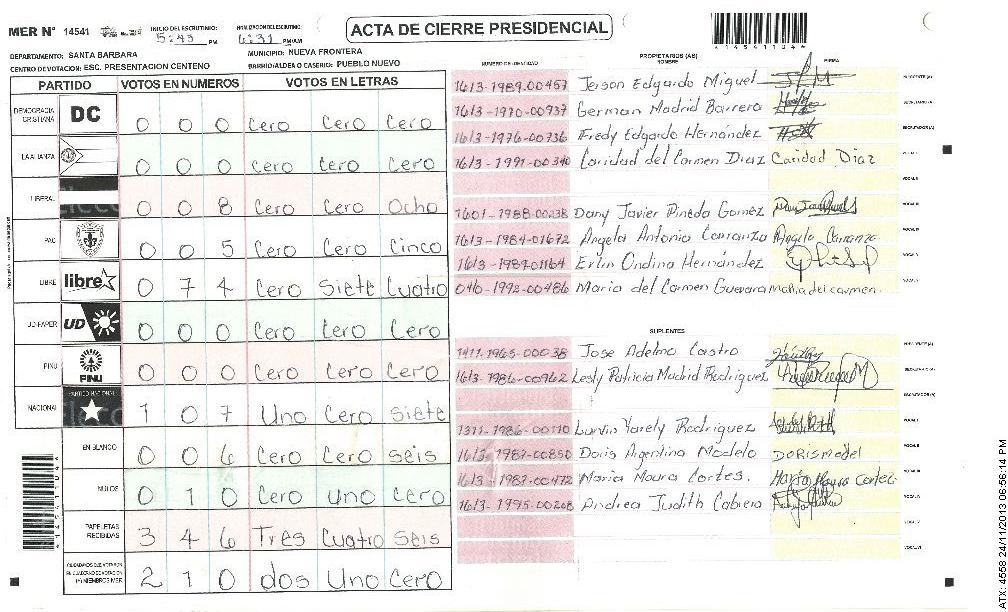 ACTA DE CIERRE PRESIDENCIAL
MER N° 14541
INICIO DEL ESCRUTINIO: 5:43 PM
6:31 PM
DEPARTAMENTO: SANTA BARBARA
MUNICIPIO: NUEVA FRONTERA
CENTRO DE VOTACION: ESC. PRESENTACION CENTENO
BARRIO/ALDEA O CASERIO: PUEBLO NUEVO
PARTIDO VOTOS EN NUMEROS VOTOS EN LETRAS
DEMOCRACIA CRISTIANA DC 0 0 0 Cero Cero Cero
LA ALIANZA 0 0 0 Cero Cero Cero
LIBERAL 0 0 8 Cero Cero Ocho
PAC 0 0 5 Cero Cero Cinco
LIBRE libre 0 7 4 Cero Siete Cuatro
UD-FAPER UD 0 0 0 Cero Cero Cero
PINU PINU 0 0 0 Cero Cero Cero
NACIONAL PARTIDO NACIONAL 1 0 7 Uno Cero Siete
EN BLANCO 0 0 6 Cero Cero Seis
NULOS 0 1 0 Cero Uno Cero
PAPELETAS RECIBIDAS 3 4 6 Tres Cuatro Seis
CIUDADANOS QUE VOTARON EN CUADERNO DE VOTACION (+) MIEMBROS MER 2 1 0 dos Uno Cero
PROPIETARIOS (AS)
NUMERO DE IDENTIDAD NOMBRE FIRMA
1613-1989-00457 Jerson Edgardo Miguel
1613-1970-00937 German Madrid Barrera SECRETARIO/A
1613-1976-00736 Fredy Edgardo Hernández ESCRUTADOR (A)
1613-1991-00340 Caridad del Carmen Diaz Caridad Diaz VOCAL I
VOCAL II
1601-1988-00238 Dany Javier Pineda Gomez VOCAL III
1613-1984-01672 Angela Antonia Carranza Angela Carranza VOCAL IV
1613-1987-01164 Erlin Ondina Hernández VOCAL V
Maria del Carmen Guevara maria del carmen
SUPLENTES
1411-1965-00038 Jose Adelmo Castro PRESIDENTE (A)
1613-1986-00962 Lesly Patricia Madrid Rodriguez SECRETARIO (A)
ESCRUTADOR (A)
1311-1986-00110 Yarely Rodriguez VOCAL I
1613-1987-00850 Doris Argentina Modelo VOCAL II
1613-1987-00472 Maria Maura Cortes. Maria Maura Cortes VOCAL III
1613-1995-00208 Andrea Judith Cabrera
VOCAL V
VOCAL VI
ATX: 4558 24/11/2013 06:56:14 PM